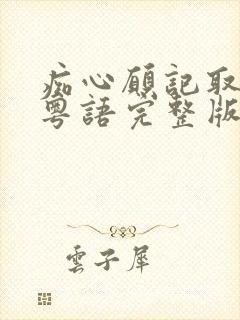 痴心願記取
粵語完整版
雲子犀